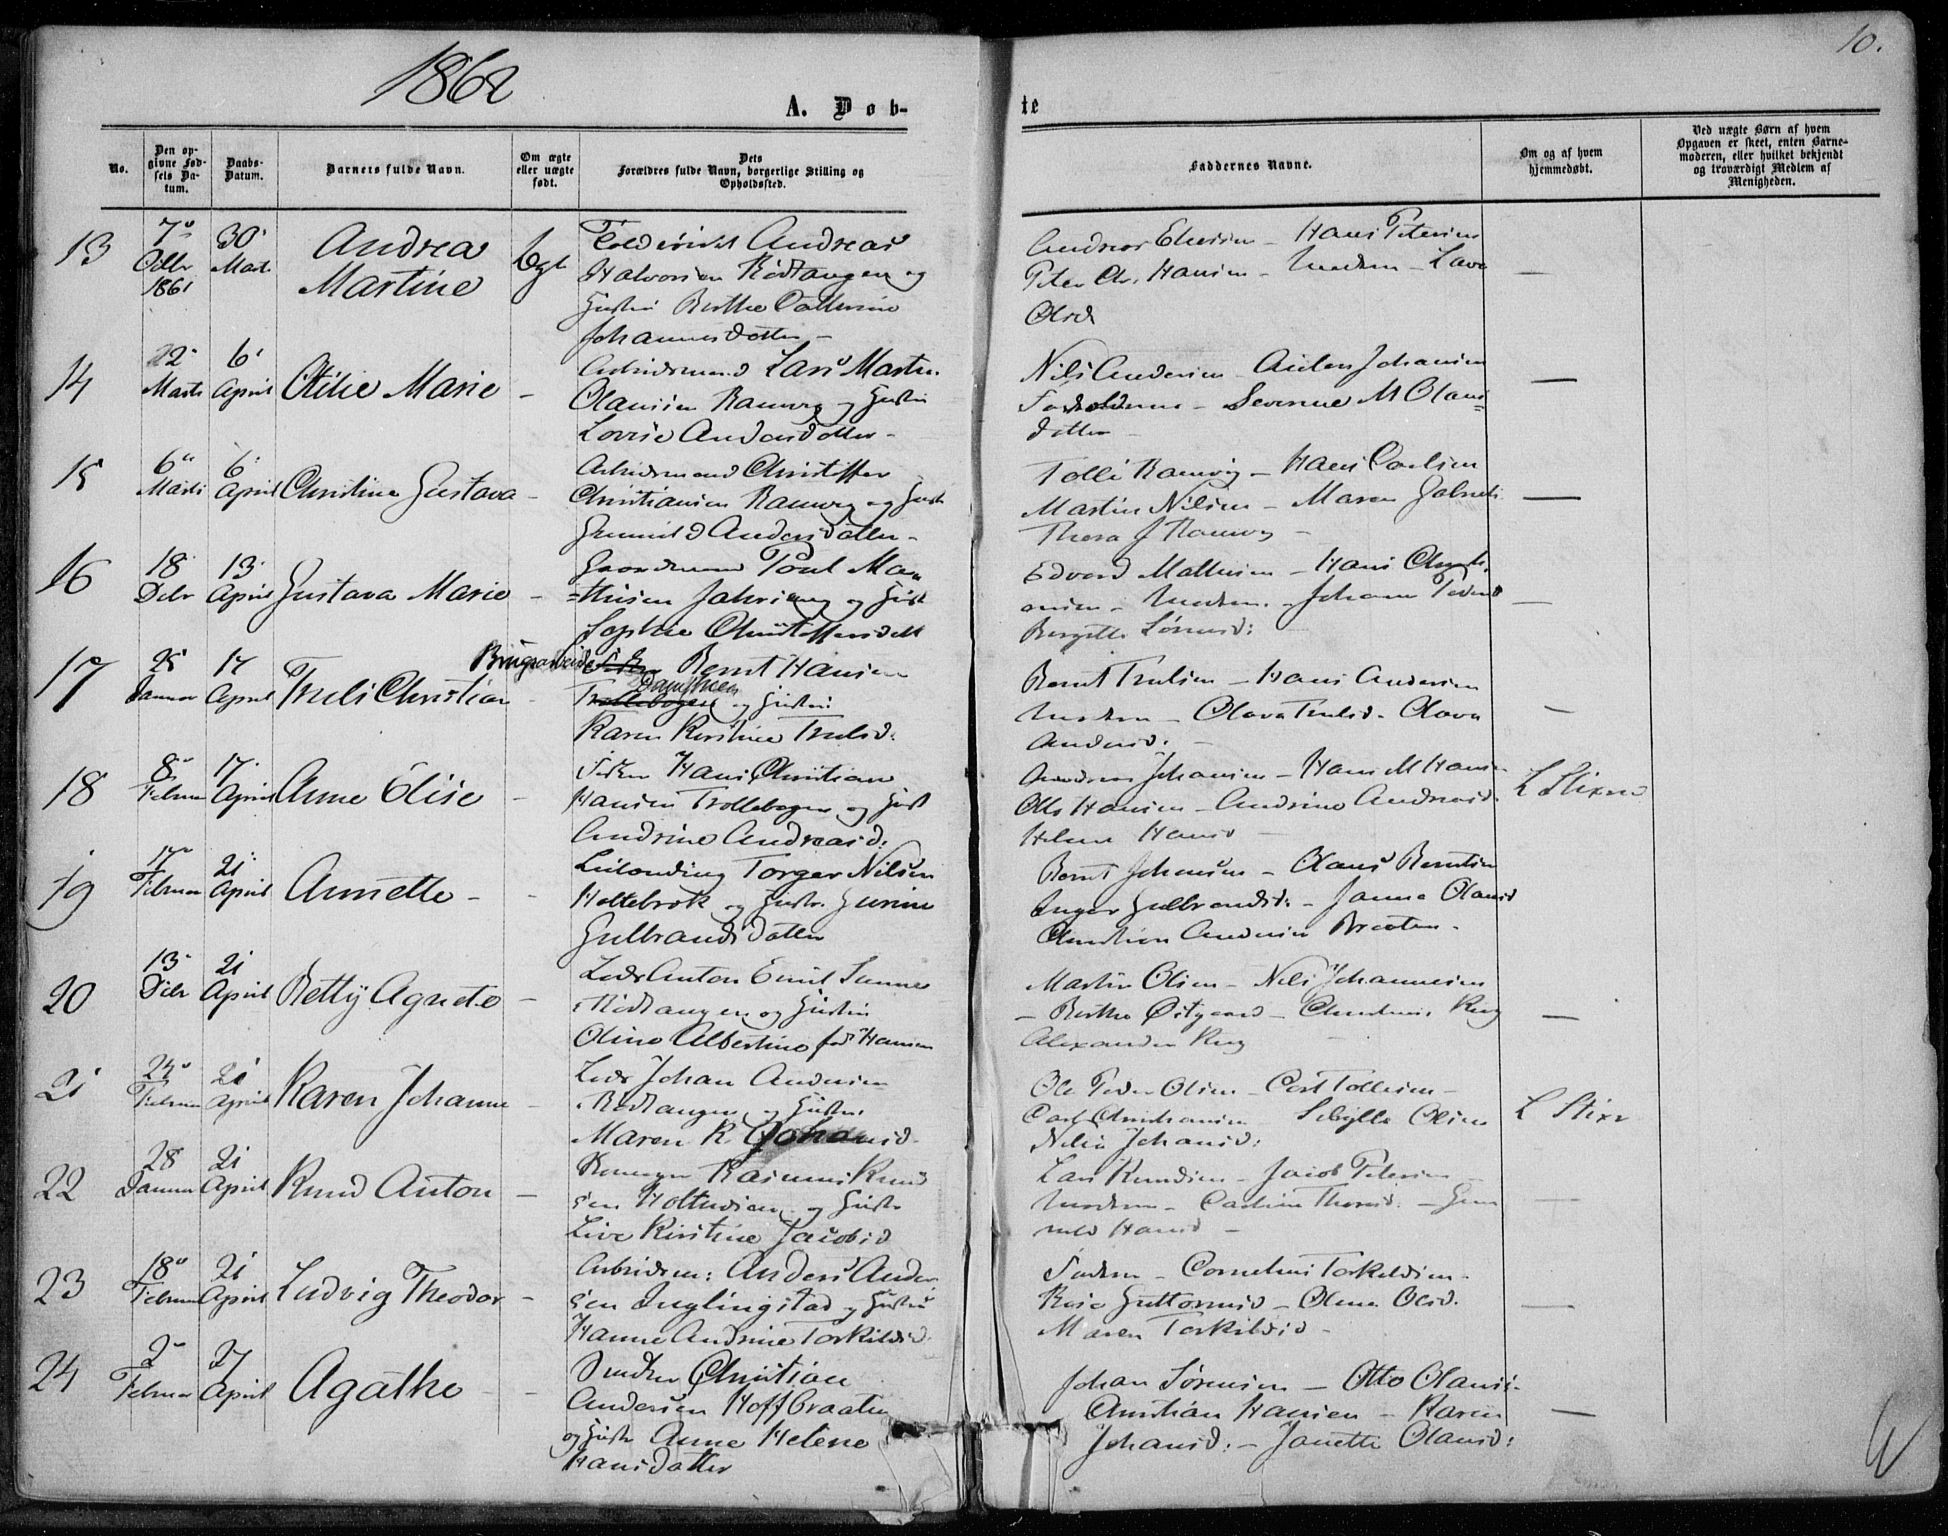 1862
10.
A. Døb-
te
No.
Den op-
givne Fød-
sels Da-
tum.
Daabs-
Datum.
Barnets fulde Navn.
Om ægte
eller uægte
født.
Dets
Forældres fulde Navn, borgerlige Stilling og
Opholdssted.
Faddernes Navne.
Om og af hvem
hjemmedøbt.
Ved uægte Børn af hvem
Opgaven er skeet, enten Barne-
moderen, eller hvilket bekjendt
og troværdigt Medlem af
Menigheden.
13
7
Octbr
1861
30
Marts
Andrea
Martine
Andreas
Halvorsen Rødtangen og
Hustru Berthe Cathrine
Johannesdatter -
Hans Petersen
Peter Chr. Hansen - Modren - Lava
Olsd
—
14
22
Marts
6
April
Otilie Marie
-
Arbeidsmand Lars Martin
Olaussen Ramvig og Hustru
Lovise Andersdatter -
Nils Andersen - Johansen
- Severine M Olaus=
datter
—
15
6
Marts
6
April
Christine Gustava
-
Arbeidsmand Christoffer
Christiansen Ramvig og Hustr
Gunnild Andersdatter -
Tolle Ramvig - Hans Carlsen
Martin Nilsen - Maren
Thora J Ramvig -
—
16
18
Debr
13
April
Gustava Marie
-
Gaardmand Poul Ma=
=thisen og Hust
Sophie Christoffersdatt
Edvard Mathisen - Hans Christi
ansen - Modren - Johanne Pedersd
Bergitte Sørensd:
—
17
25
Januar
17
April
Truls Christian
-
Brugsarbeider Bernt Hansen
Trollebogen og Hustru
Karen Kirstine Trulsd.
Bernt Trulsen - Hans Andersen
Modren - Olava Trulsd. Olava
Andersd. -
—
18
8
Februar
17
April
Anne Elise
-
Fisker Hans Christian
Hansen Trollebogen og Hust
Andrine Andreasd.
Andreas Johansen - Hans M Hansen
Hansen - Andrine Andreasd.
Helene Hansd -
L Stixrud
19
17
Februar
21
April
Annette -
-
Leilending Torger Nilsen
Holtebrok og Hustr. Gurine
Gulbrandsdatter
Bernt Johansen - Olaus Berntsen
Inger Gulbrandsd. - Janna Olausd
Christian Andersen Braaten.
20
13
Debr
21
April
Betty Agnete
-
Lods Anton Emil Sunne
Rødtangen og Hustru
Oline Albertine født Hansen
Martin Olsen - Nils Johannesen
- Berthe Østgaard - Ring
Alexander Ring
—
21
24
Februar
21
April
Karen Johanne
-
Lods Johan Andersen
Rødtangen og Hustru
Maren K Johansd.
Ole Peder Olsen - Tollefsen -
Carl Christiansen Sibylla Olsen
Johansd:
L Stixr
22
28
Januar
21
April
Knud Anton
-
Rasmus Knud
sen og Hustr
Live Kirstine Jacobsd
Lars Knudsen - Jacob Petersen
Modren - Thorsd. - Gun
nild Hansd -
—
23
18
Februar
21
April
Ludvig Theodor
-
Arbeidsm: Anders Ander
sen Inglingstad og Hustru
Hanne Andrine Torkildsd.
Fadren - Cornelius Torkildsen -
Guttormsd - Olsd.
Maren Torkildsd -
—
24
2
Februar
27
April
Agathe -
-
Snedker Christian
Andersen Hoffbraaten
og Hustr Anne Helene
Hansdatter
Johan Sørensen - Otto Olauss.
Christian Hansen - Karen
Johansd. - Janette Olausd:
—